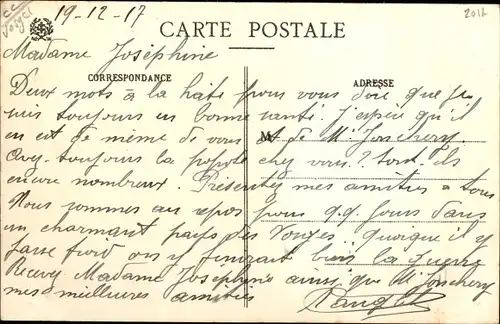 19-12-17
CARTE POSTALE
2017
Madame Joséphine
CORRESPONDANCE
ADRESSE
Deux mots à la hâte pour vous dire que je
suis toujours en bonne santé j'espère qu'il
en est de même de vous et de Mr Jonchery.
Avez-toujours la popote chez vous? sont-ils
encore nombreux. Présentez mes amitiés à tous
Nous sommes au repos pour q.q. jours dans
un charmant pays des Vosges, quoique il y
fasse froid on y finirait bien la guerre
Recevez Madame Joséphine ainsi que Mr Jonchery
mes meilleures amitiés